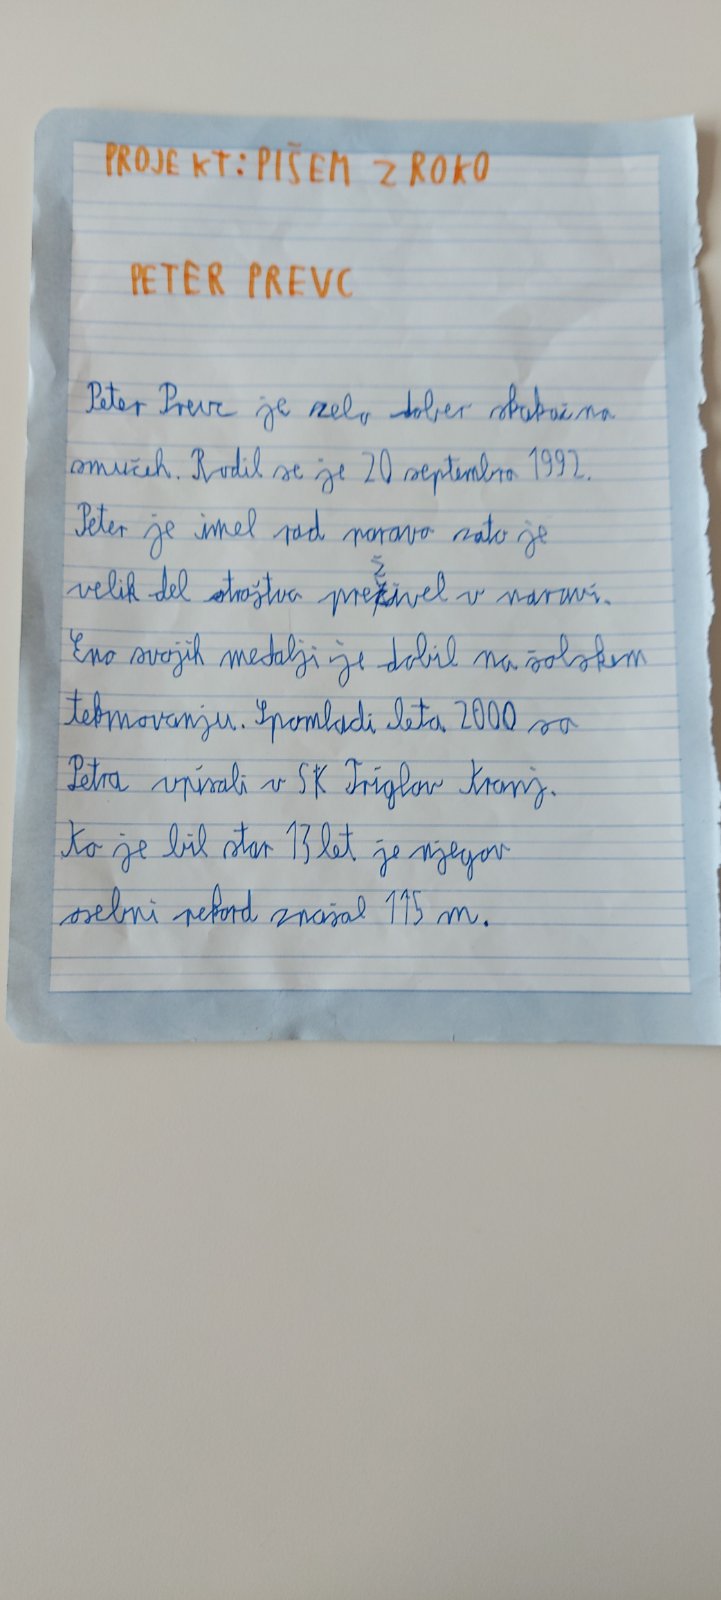 PROJEKT: PIŠEM Z ROKO
PETER PREVC
Peter Prevc je zelo dober skakač na
smučeh. Rodil se je 20 septembra 1992.
Peter je imel rad naravo zato je
velik del otroštva preživel v naravi.
Eno svojih medalji je dobil na šolskem
tekmovanju. Spomladi leta 2000 so
Petra vpisali v SK Triglav Kranj.
Ko je bil star 13 let je njegov
osebni rekord znašal 115 m.